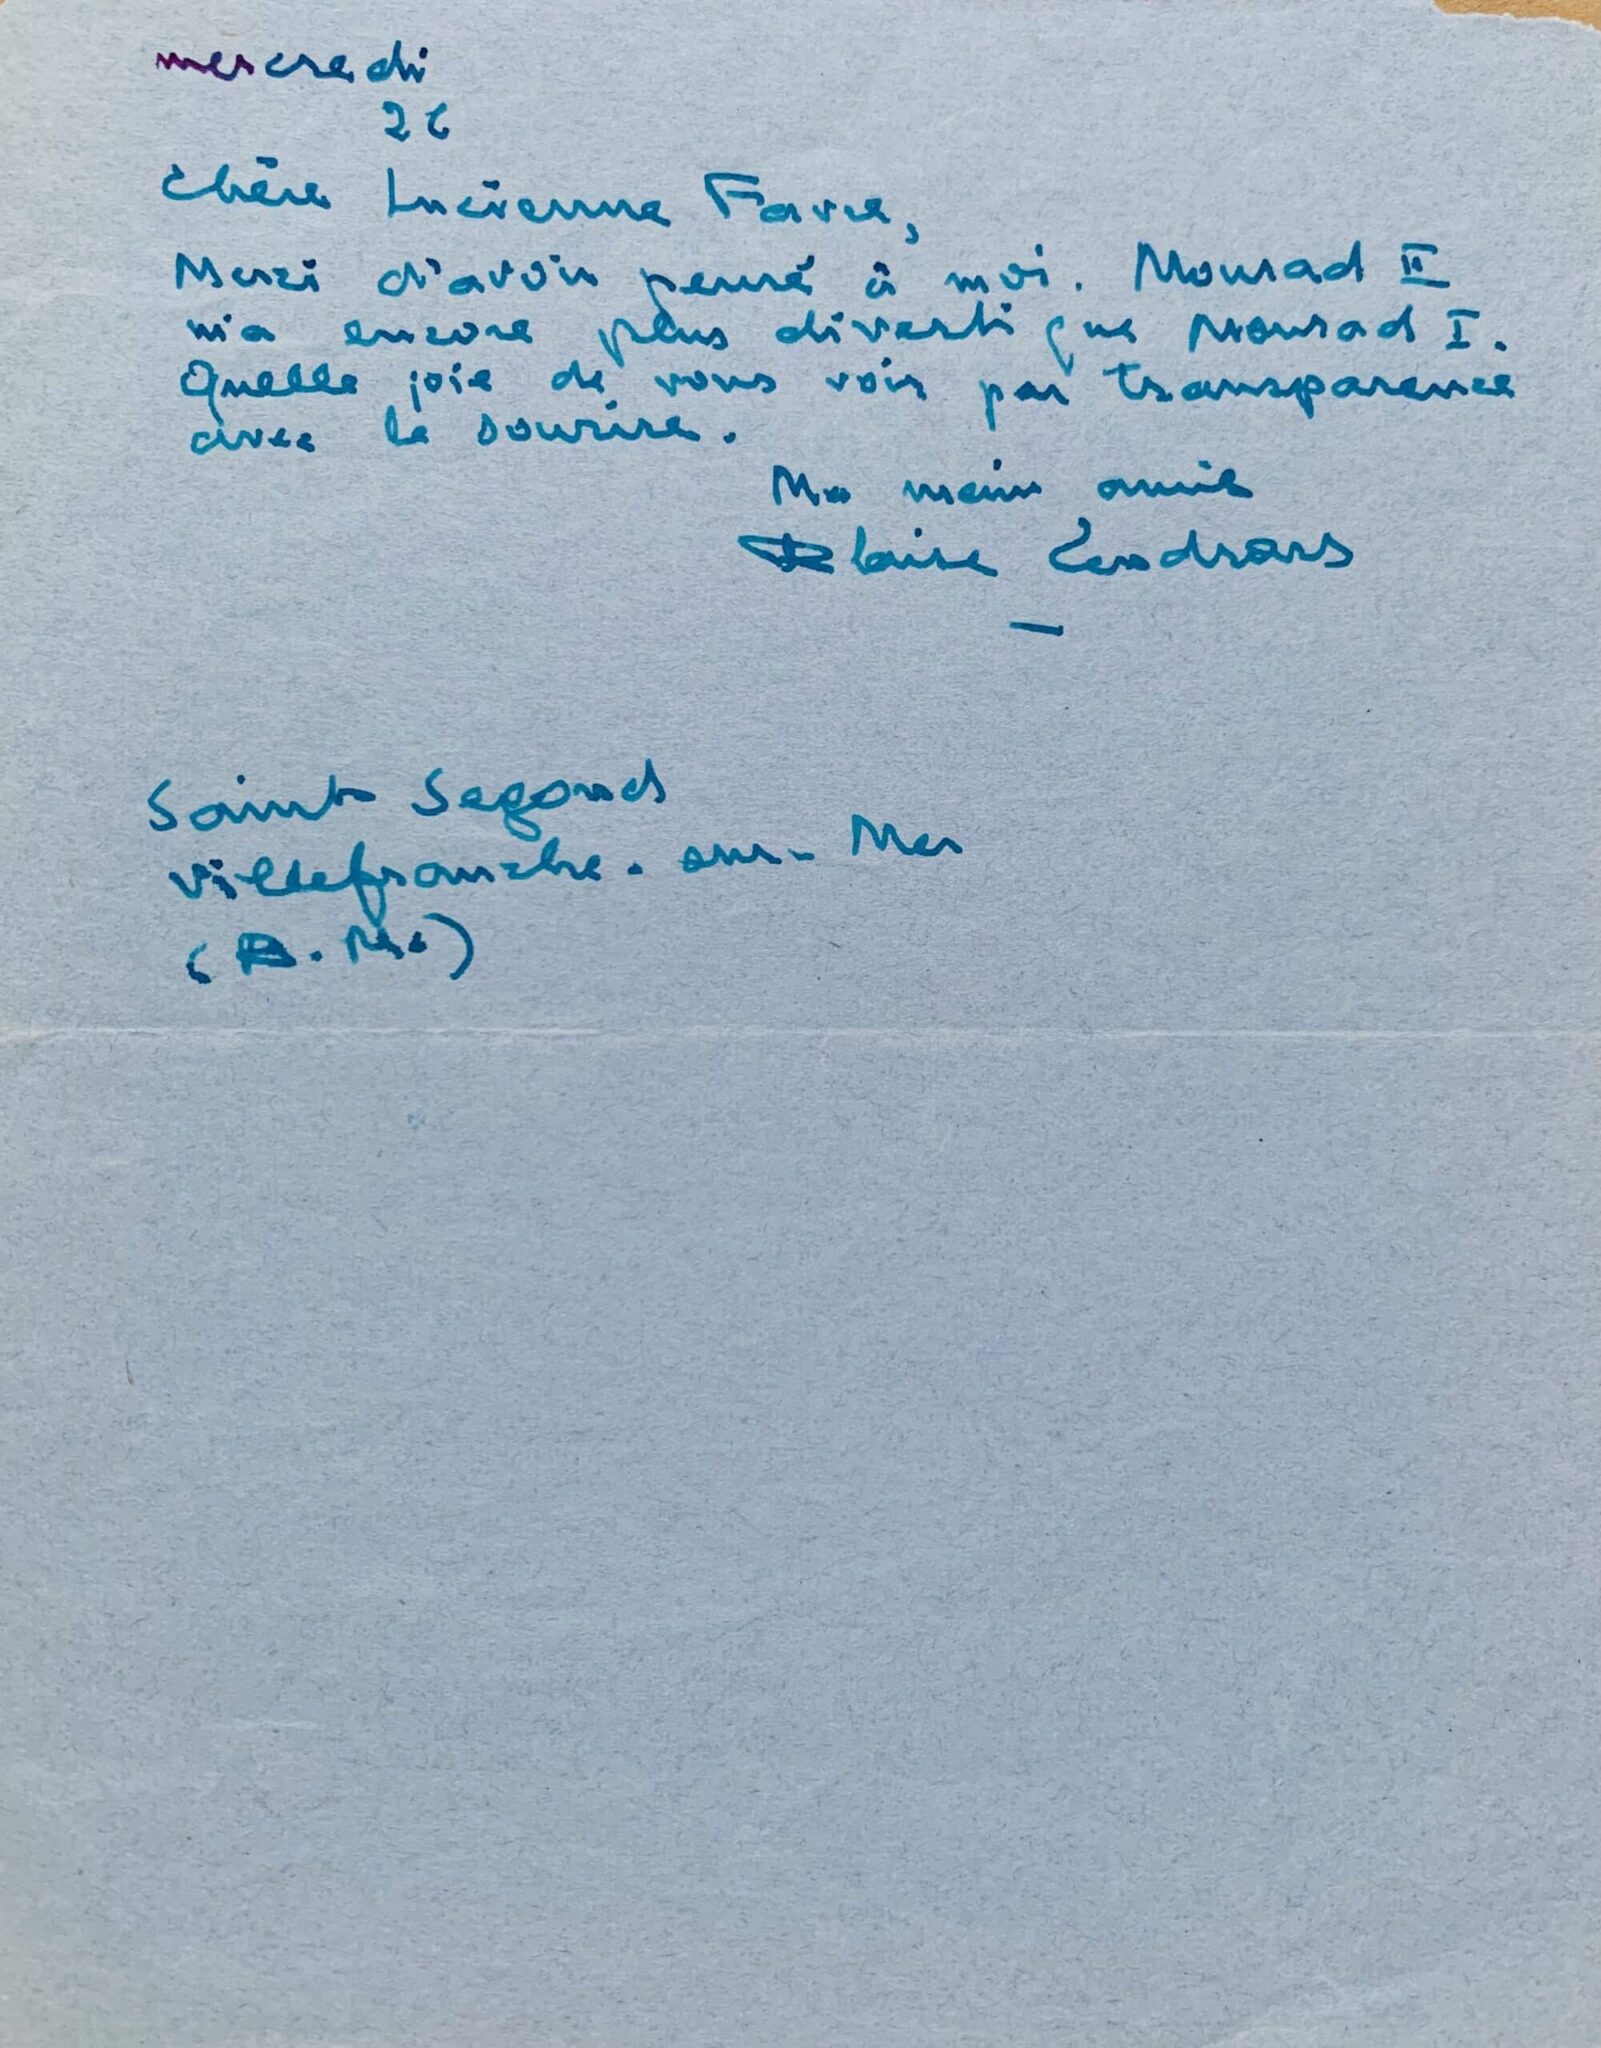 mercredi
26
Chère Lucienne Favre,
Merci d'avoir pensé à moi. Mourad II
m'a encore plus diverti que Mourad I.
Quelle joie de vous voir par transparence
avec le sourire.
Ma main amie
Blaise Cendrars
Saint Segond
Villefranche-sur-Mer
(A. M.)